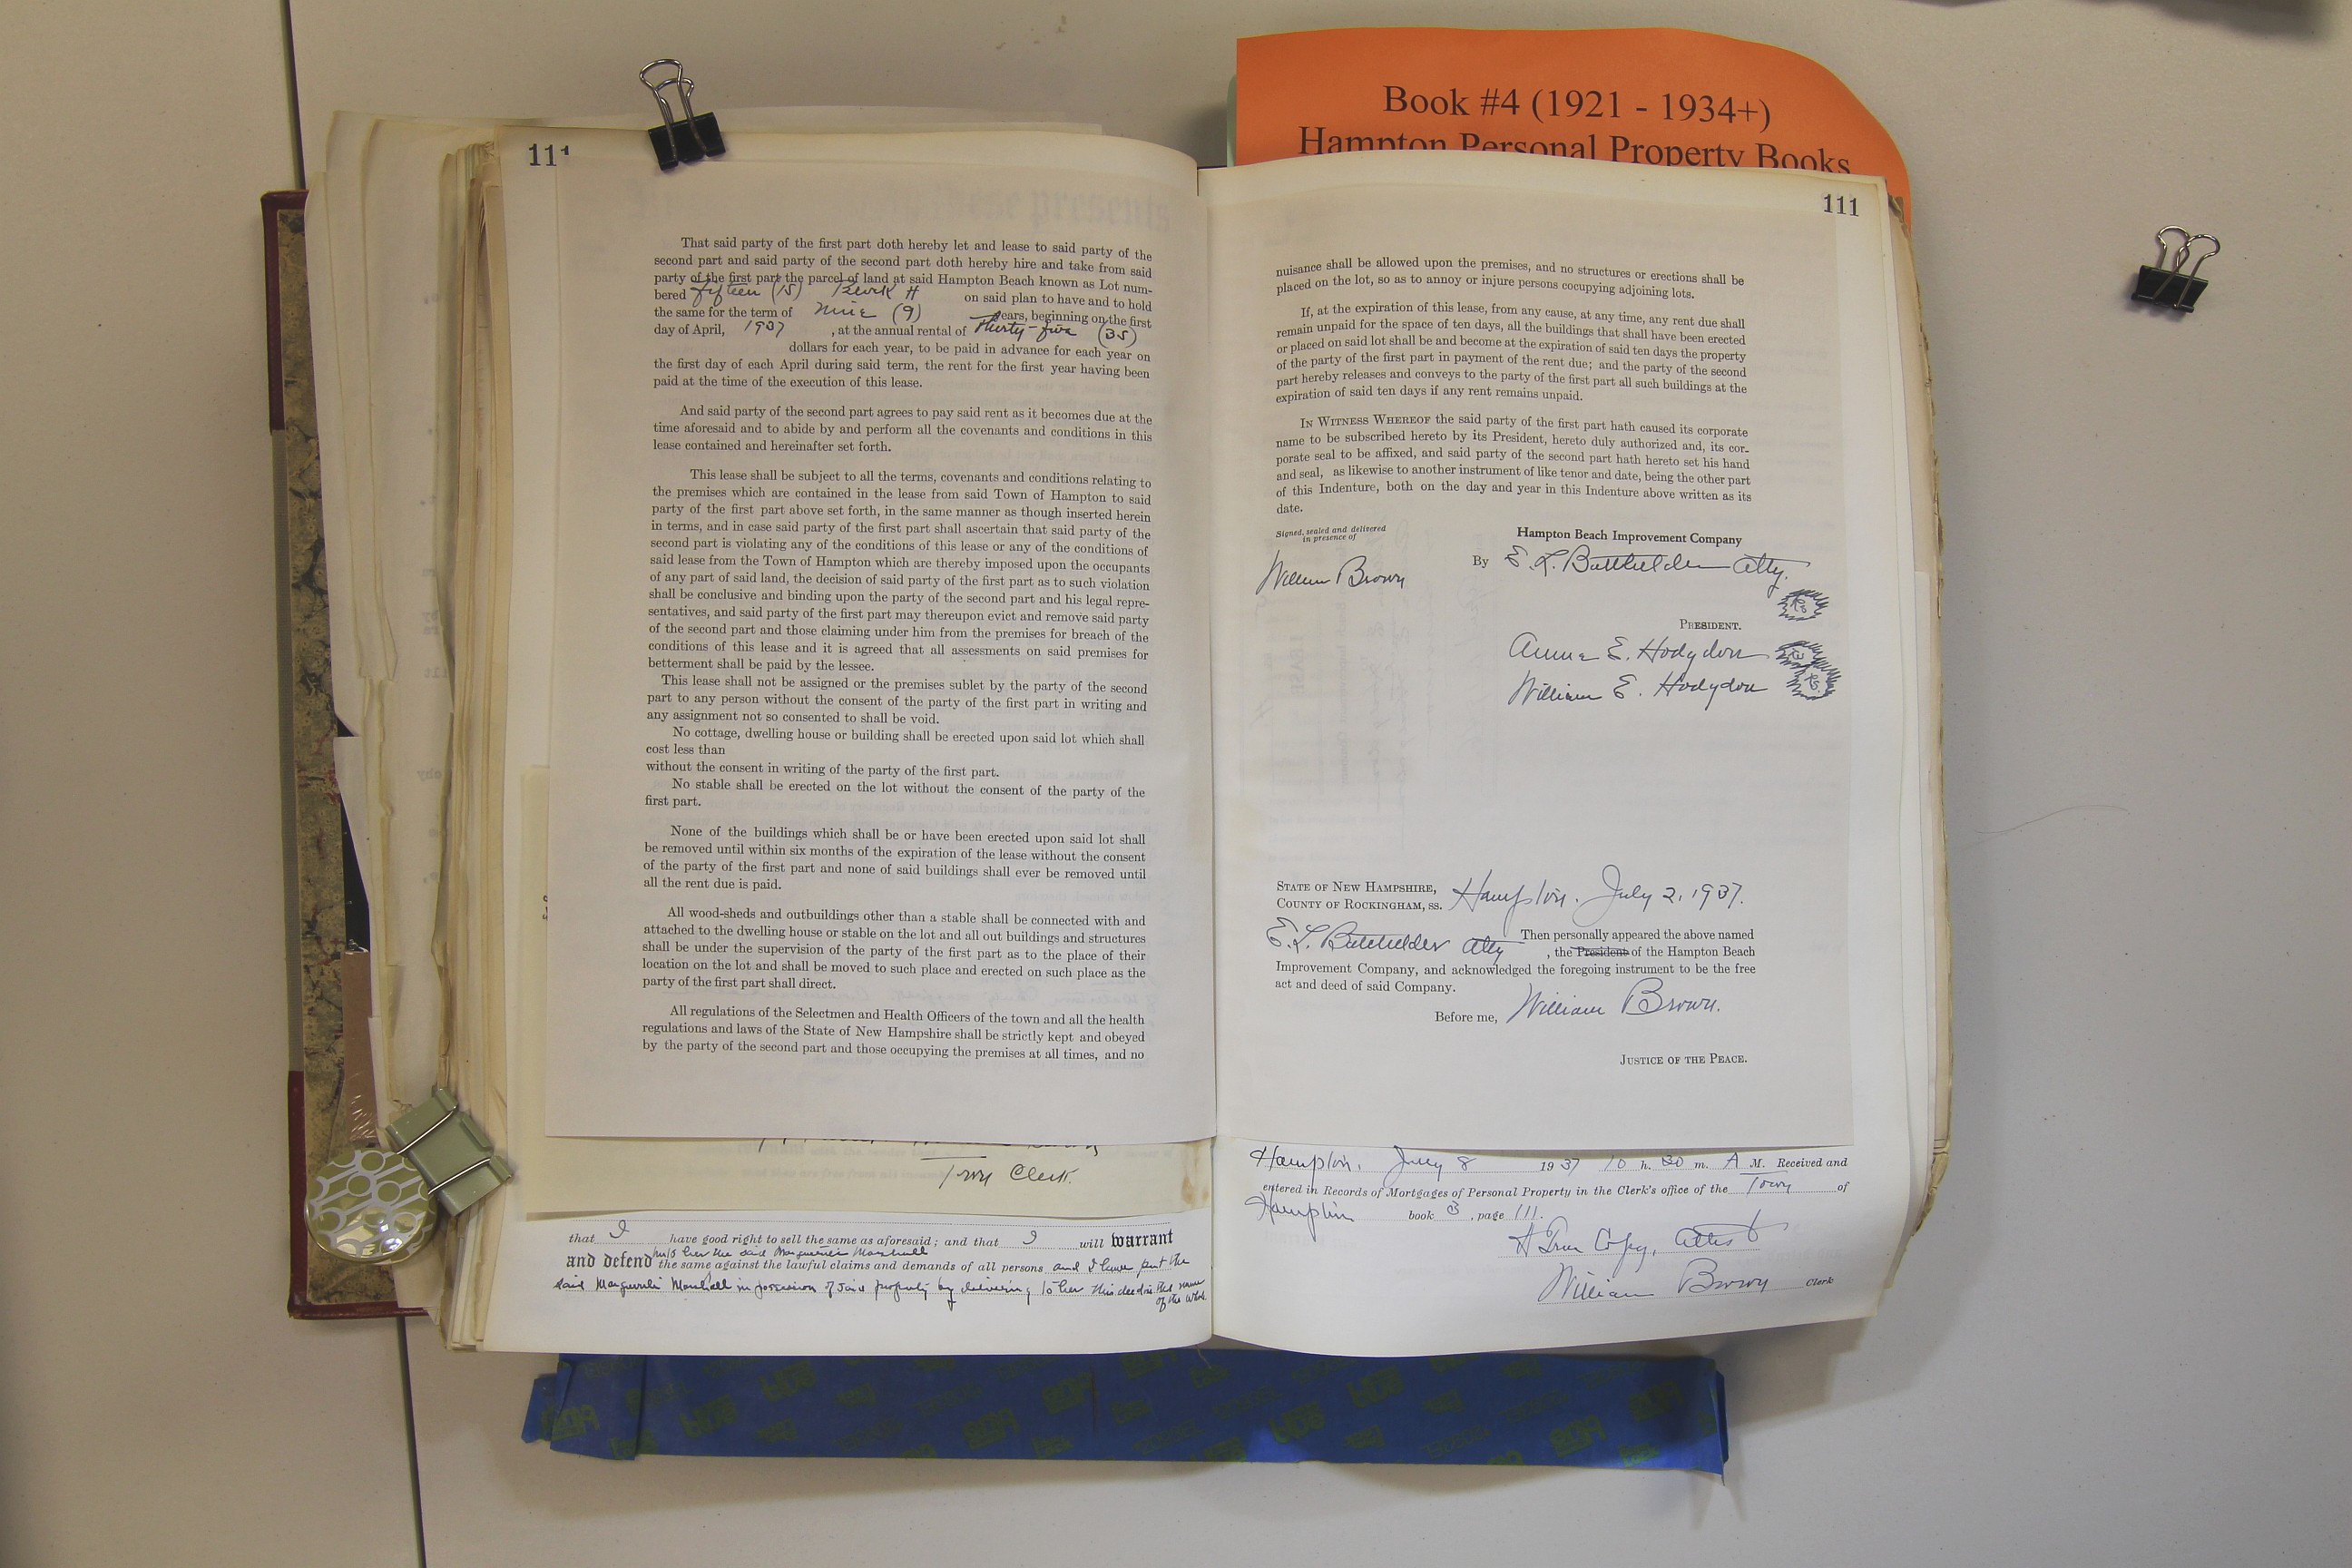 Book #4 (1921 - 1934+)
Hampton Personal Property Books
111
That said party of the first part doth hereby let and lease to said party of the
second part and said party of the second part doth hereby hire and take from said
party of the first part the parcel of land at said Hampton Beach known as Lot num-
bered fifteen (15) Block H on said plan to have and to hold
the same for the term of nine (9) years, beginning on the first
day of April, 1937 , at the annual rental of Thirty-five (35)
dollars for each year, to be paid in advance for each year on
the first day of each April during said term, the rent for the first year having been
paid at the time of the execution of this lease.
And said party of the second part agrees to pay said rent as it becomes due at the
time aforesaid and to abide by and perform all the covenants and conditions in this
lease contained and hereinafter set forth.
This lease shall be subject to all the terms, covenants and conditions relating to
the premises which are contained in the lease from said Town of Hampton to said
party of the first part above set forth, in the same manner as though inserted herein
in terms, and in case said party of the first part shall ascertain that said party of the
second part is violating any of the conditions of this lease or any of the conditions of
said lease from the Town of Hampton which are thereby imposed upon the occupants
of any part of said land, the decision of said party of the first part as to such violation
shall be conclusive and binding upon the party of the second part and his legal repre-
sentatives, and said party of the first part may thereupon evict and remove said party
of the second part and those claiming under him from the premises for breach of the
conditions of this lease and it is agreed that all assessments on said premises for
betterment shall be paid by the lessee.
This lease shall not be assigned or the premises sublet by the party of the second
part to any person without the consent of the party of the first part in writing and
any assignment not so consented to shall be void.
No cottage, dwelling house or building shall be erected upon said lot which shall
cost less than
without the consent in writing of the party of the first part.
No stable shall be erected on the lot without the consent of the party of the
first part.
None of the buildings which shall be or have been erected upon said lot shall
be removed until within six months of the expiration of the lease without the consent
of the party of the first part and none of said buildings shall ever be removed until
all the rent due is paid.
All wood-sheds and outbuildings other than a stable shall be connected with and
attached to the dwelling house or stable on the lot and all out buildings and structures
shall be under the supervision of the party of the first part as to the place of their
location on the lot and shall be moved to such place and erected on such place as the
party of the first part shall direct.
All regulations of the Selectmen and Health Officers of the town and all the health
regulations and laws of the State of New Hampshire shall be strictly kept and obeyed
by the party of the second part and those occupying the premises at all times, and no
Town Clerk.
that I have good right to sell the same as aforesaid; and that I will warrant
and defend unto her the said Marguerite Marshall
the same against the lawful claims and demands of all persons and I have put the
said Marguerite Marshall in possession of said property by delivering to her this deed in the name
of the whole
111
nuisance shall be allowed upon the premises, and no structures or erections shall be
placed on the lot, so as to annoy or injure persons cocupying adjoining lots.
If, at the expiration of this lease, from any cause, at any time, any rent due shall
remain unpaid for the space of ten days, all the buildings that shall have been erected
or placed on said lot shall be and become at the expiration of said ten days the property
of the party of the first part in payment of the rent due; and the party of the second
part hereby releases and conveys to the party of the first part all such buildings at the
expiration of said ten days if any rent remains unpaid.
In Witness Whereof the said party of the first part hath caused its corporate
name to be subscribed hereto by its President, hereto duly authorized and, its cor-
porate seal to be affixed, and said party of the second part hath hereto set his hand
and seal, as likewise to another instrument of like tenor and date, being the other part
of this Indenture, both on the day and year in this Indenture above written as its
date.
Signed, sealed and delivered
in presence of
William Brown
Hampton Beach Improvement Company
By E. L. Batchelder Atty.
President.
Anna E. Hodgdon
William E. Hodgdon
State of New Hampshire,
County of Rockingham, ss. Hampton. July 2, 1937.
E. L. Batchelder Atty Then personally appeared the above named
, the President of the Hampton Beach
Improvement Company, and acknowledged the foregoing instrument to be the free
act and deed of said Company.
Before me, William Brown.
Justice of the Peace.
Hampton, July 8 1937 10 h. 30 m. A M. Received and
entered in Records of Mortgages of Personal Property in the Clerk's office of the Town of
Hampton book 3, page 111.
A True Copy, Attest
William Brown Clerk